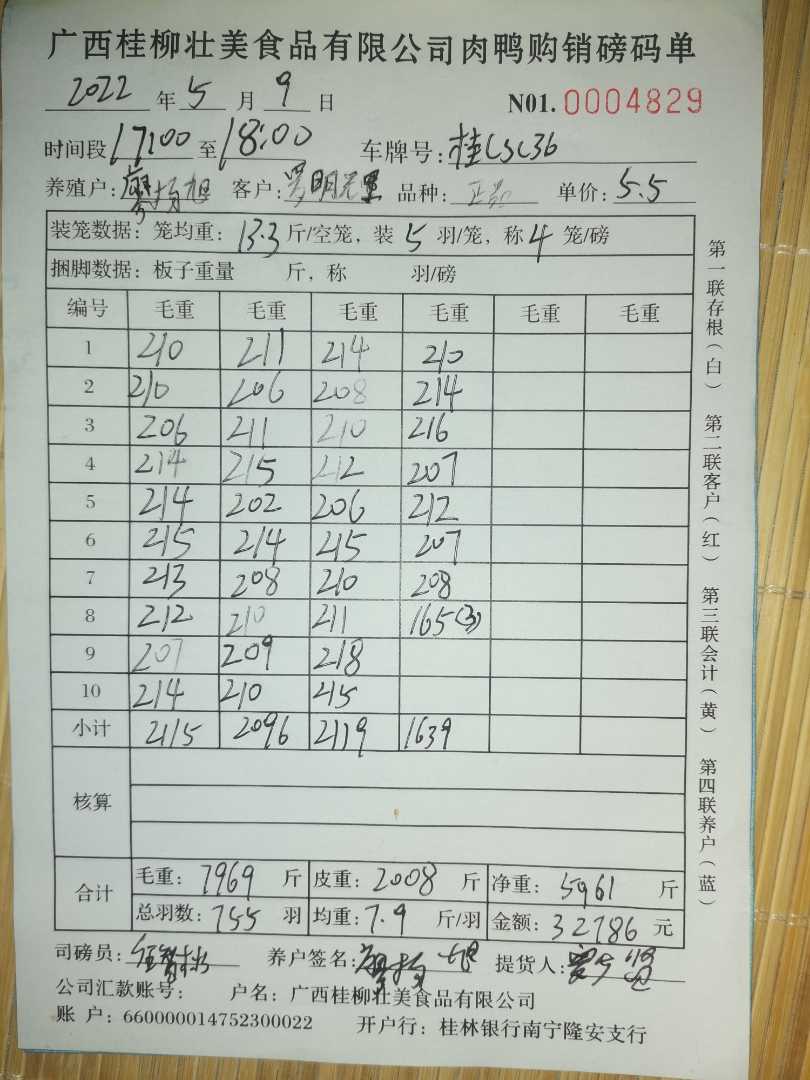 广西桂柳壮美食品有限公司肉鸭购销磅码单
2022 年 5 月 9 日 N01. 0004829
时间段 17:00 至 18:00 车牌号:
养殖户: 客户: 品种: 单价: 5.5
装笼数据: 笼均重: 13.3 斤/空笼, 装 5 羽/笼, 称 4 笼/磅
捆脚数据: 板子重量 斤, 称 羽/磅
编号 毛重 毛重 毛重 毛重 毛重 毛重
1 210 211 214 210
2 210 206 208 214
3 206 211 210 216
4 214 215 212 207
5 214 202 206 212
6 215 214 215 207
7 213 208 210 208
8 212 210 211 165(3)
9 207 209 218
10 214 210 215
小计 2115 2096 2119 1639
核算
合计 毛重: 7969 斤 皮重: 2008 斤 净重: 5961 斤
总羽数: 755 羽 均重: 7.9 斤/羽 金额: 32786 元
司磅员: 养户签名: 提货人:
公司汇款账号: 户名: 广西桂柳壮美食品有限公司
账 户: 660000014752300022 开户行: 桂林银行南宁隆安支行
第一联存根(白) 第二联客户(红) 第三联会计(黄) 第四联养户(蓝)